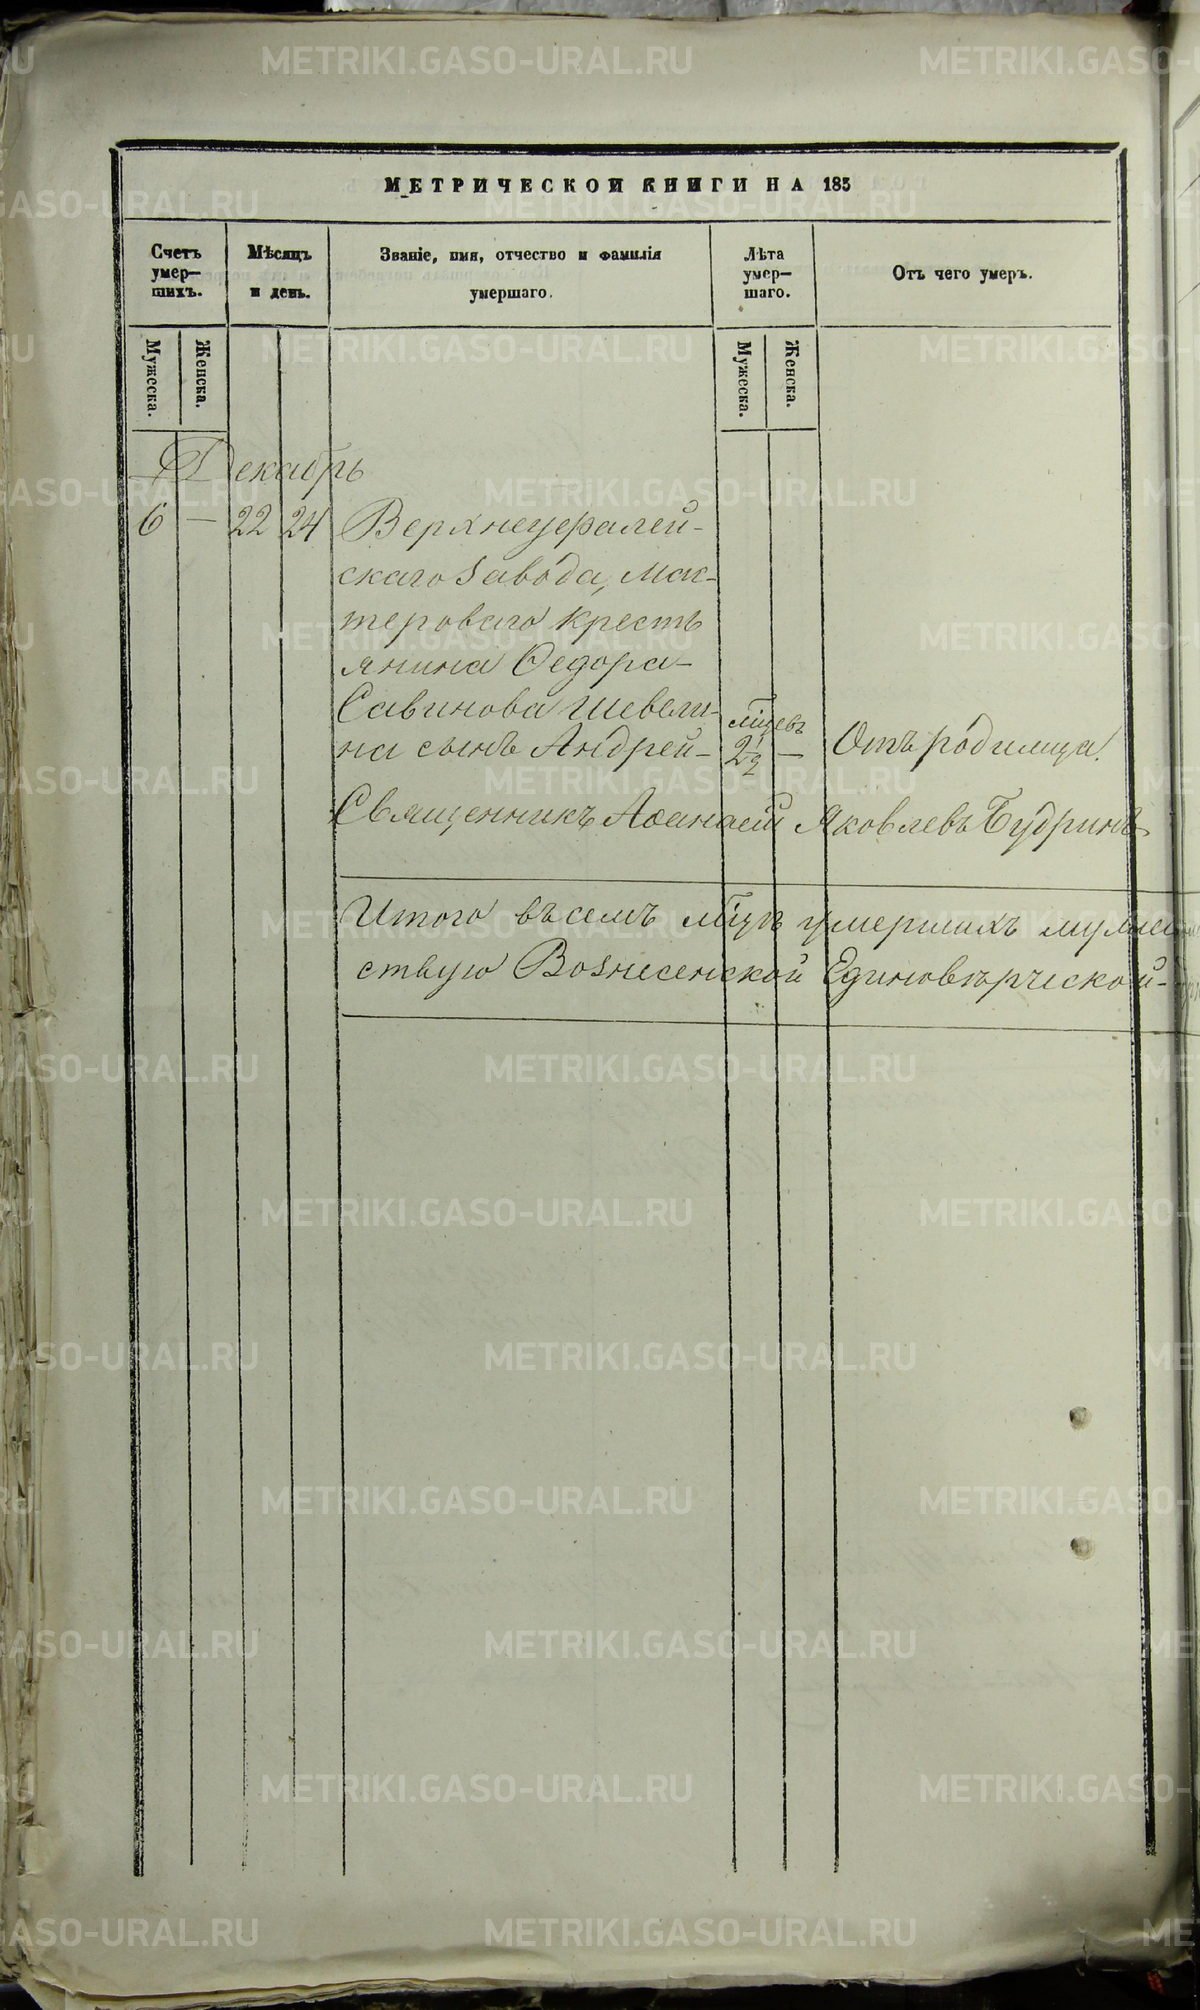 МЕТРИЧЕСКОЙ КНИГИ НА 185
Счетъ умер—шихъ.
Мѣсяцъ и день.
Званіе, имя, отчество и фамилія умершаго.
Лѣта умер—шаго.
Отъ чего умеръ.
Мужеска.
Женска.
Мужеска.
Женска.
Декабрь
6 — 22 24 Верхнеуфалей-
скаго Завода, Мас-
тероваго кресть
янина Ѳедора
Савинова Шевели-
на сынъ Андрей — мѣсяцевъ 2 1/2 — Отъ родимца.
Священникъ Аѳанасій Яковлевъ Будринъ
Итого въ семъ умершихъ мужес
Вознесенской Единовѣрческой
METRIKI.GASO-URAL.RU